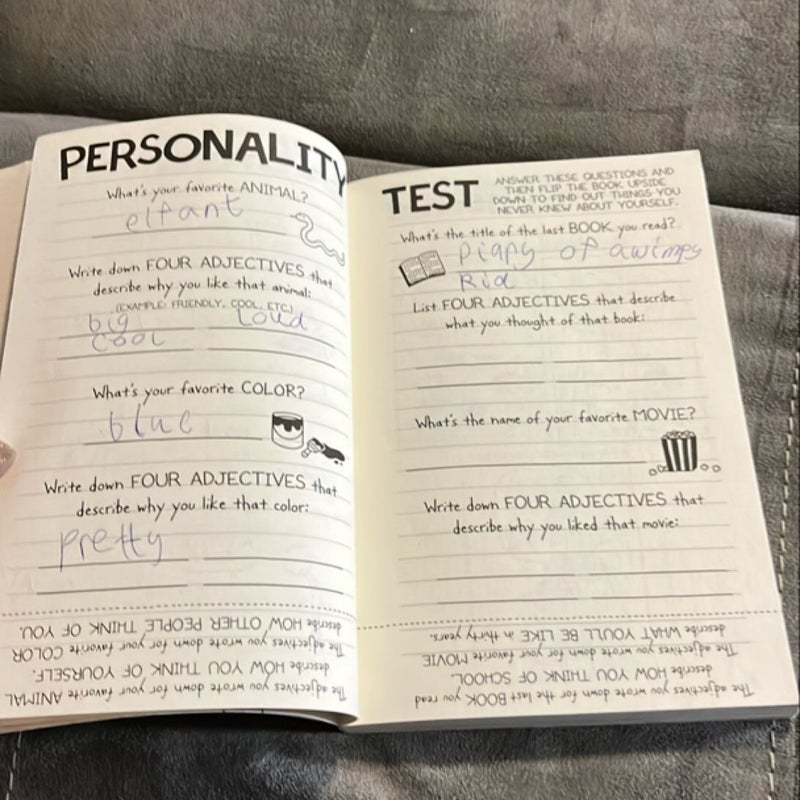 PERSONALITY
What's your favorite ANIMAL?
elfant
Write down FOUR ADJECTIVES that
describe why you like that animal:
(EXAMPLE: FRIENDLY, COOL, ETC)
big Loud
cool
What's your favorite COLOR?
blue
Write down FOUR ADJECTIVES that
describe why you like that color:
pretty
The adjectives you wrote down for your favorite ANIMAL
describe HOW YOU THINK OF YOURSELF.
The adjectives you wrote down for your favorite COLOR
describe HOW OTHER PEOPLE THINK OF YOU.
TEST
ANSWER THESE QUESTIONS AND
THEN FLIP THE BOOK UPSIDE
DOWN TO FIND OUT THINGS YOU
NEVER KNEW ABOUT YOURSELF.
What's the title of the last BOOK you read?
Diapy of a wimps
Rid
List FOUR ADJECTIVES that describe
what you thought of that book:
What's the name of your favorite MOVIE?
Write down FOUR ADJECTIVES that
describe why you liked that movie:
The adjectives you wrote down for the last BOOK you read
describe HOW YOU THINK OF SCHOOL.
The adjectives you wrote down for your favorite MOVIE
describe WHAT YOU'LL BE LIKE in thirty years.